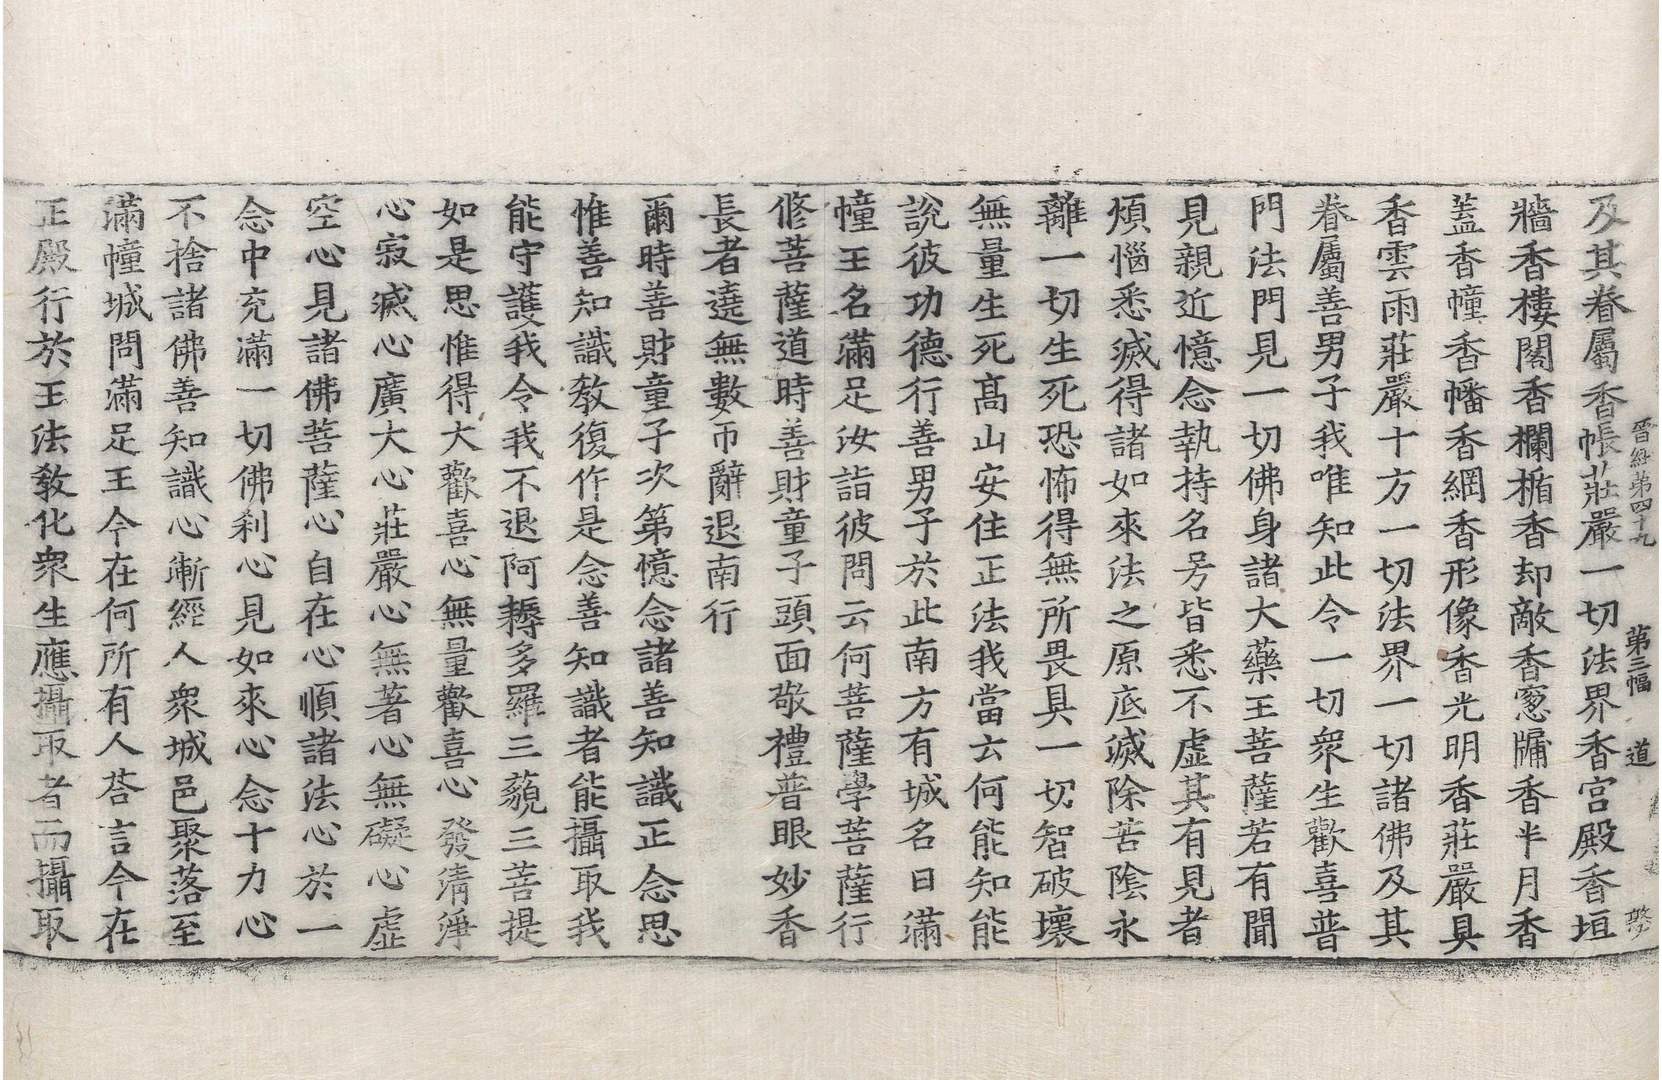 晉經第四十九 第三幅 道
及其眷屬香帳莊嚴一切法界香宮殿香垣
牆香樓閣香欄楯香却敵香窓牖香半月香
蓋香幢香幡香網香形像香光明香莊嚴具
香雲雨莊嚴十方一切法界一切諸佛及其
眷屬善男子我唯知此令一切衆生歡喜普
門法門見一切佛身諸大藥王菩薩若有聞
見親近憶念執持名号皆悉不虛其有見者
煩惱悉滅得諸如來法之原底滅除苦陰永
離一切生死恐怖得無所畏具一切智破壞
無量生死髙山安住正法我當云何能知能
說彼功德行善男子於此南方有城名曰滿
幢王名滿足汝詣彼問云何菩薩學菩薩行
修菩薩道時善財童子頭面敬禮普眼妙香
長者遶無數帀辭退南行
爾時善財童子次第憶念諸善知識正念思
惟善知識教復作是念善知識者能攝取我
能守護我令我不退阿耨多羅三藐三菩提
如是思惟得大歡喜心無量歡喜心發清淨
心寂滅心廣大心莊嚴心無著心無礙心虛
空心見諸佛菩薩心自在心順諸法心於一
念中充滿一切佛刹心見如來心念十力心
不捨諸佛善知識心漸經人衆城邑聚落至
滿幢城問滿足王今在何所有人荅言今在
正殿行於王法教化衆生應攝取者而攝取